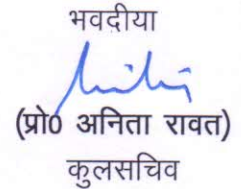 भवदीया
(प्रो0 अनिता रावत)
कुलसचिव